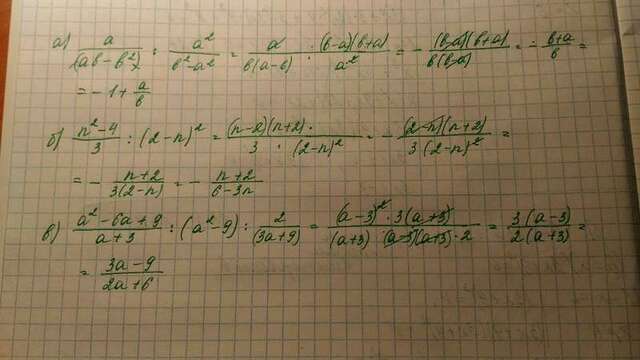 а) a/(ab-b²) : a²/(b²-a²) = a/(b(a-b)) · (b-a)(b+a)/a² = - (b-a)(b+a)/(b(b-a)) = - (b+a)/b =
= -1 + a/b
б) (n²-4)/3 : (2-n)² = (n-2)(n+2)·/(3 · (2-n)²) = - (2-n)(n+2)/(3(2-n)²) =
= - (n+2)/(3(2-n)) = - (n+2)/(6-3n)
в) (a²-6a+9)/(a+3) : (a²-9) : 2/(3a+9) = (a-3)² · 3(a+3)/((a+3)·(a-3)(a+3)·2) = 3(a-3)/(2(a+3)) =
= (3a-9)/(2a+6)